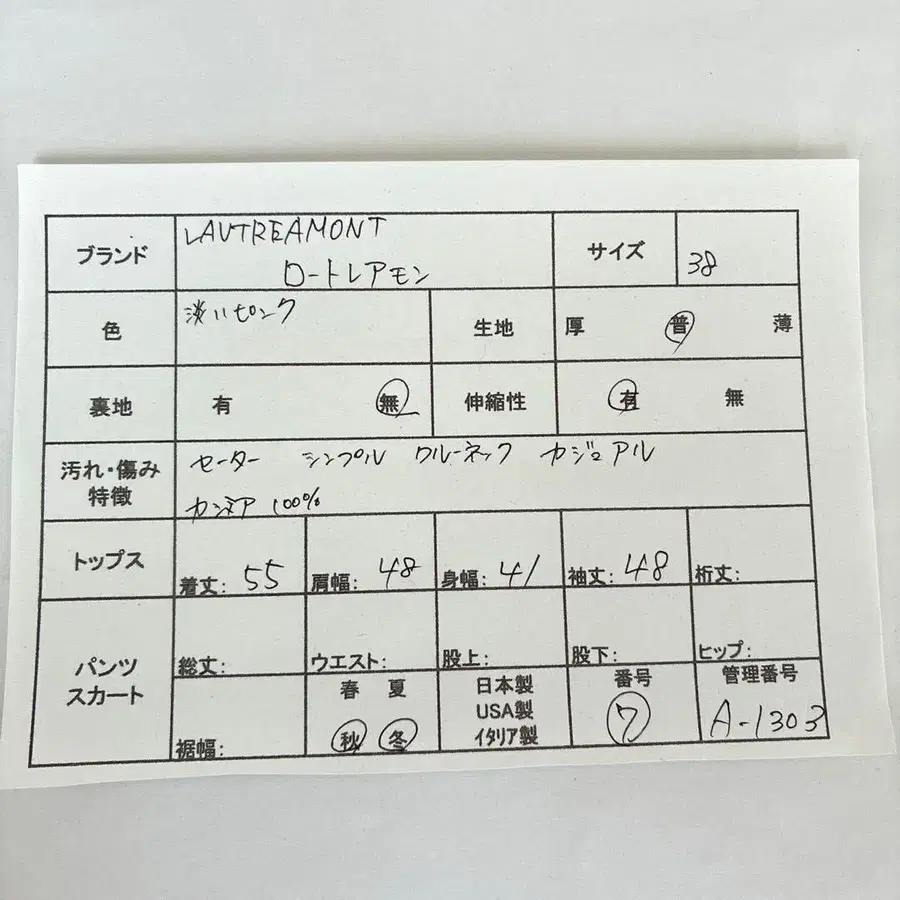 ブランド LAUTREAMONT サイズ 38
ロートレアモン
色 淡いピンク 生地 厚 普 薄
裏地 有 無 伸縮性 有 無
汚れ・傷み セーター シンプル クルーネック カジュアル
特徴 カシミア 100%
トップス 着丈: 55 肩幅: 48 身幅: 41 袖丈: 48 裄丈:
パンツ スカート 総丈: ウエスト: 股上: 股下: ヒップ:
裾幅: 春 夏 秋 冬 日本製 USA製 イタリア製 番号 7 管理番号 A-1303